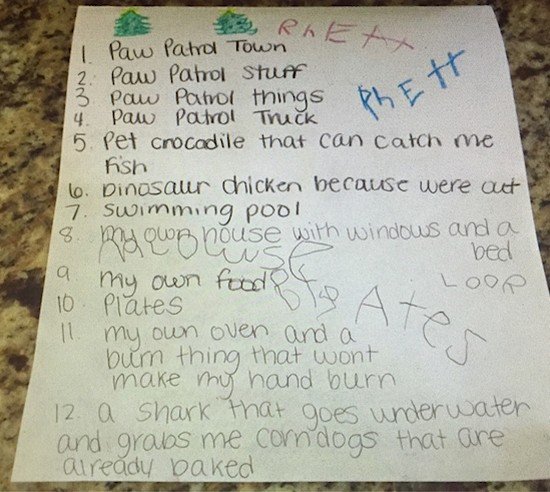 RhEtt
1. Paw Patrol Town
2. Paw Patrol stuff
RhEtt
3 Paw Patrol things
4. Paw Patrol Truck
5. Pet crocodile that can catch me
fish
6. Dinosaur chicken because were out
7. swimming pool
8. my own house with windows and a
bed
9 my own food
LOOP
10 Plates
AtES
11. my own oven and a
burn thing that wont
make my hand burn
12. a shark that goes underwater
and grabs me corndogs that are
already baked